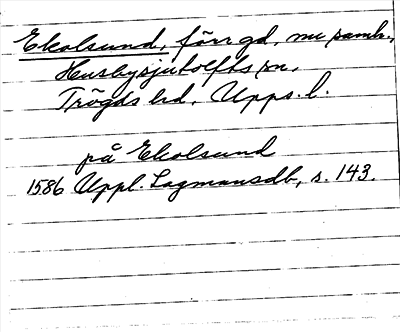 Ekolsund, förr gd, nu samh.,
Husbysjutolfts sn,
Trögds hd, Upps. l.
på Ekolsund
1586 Uppl. Lagmansdb, s. 143.